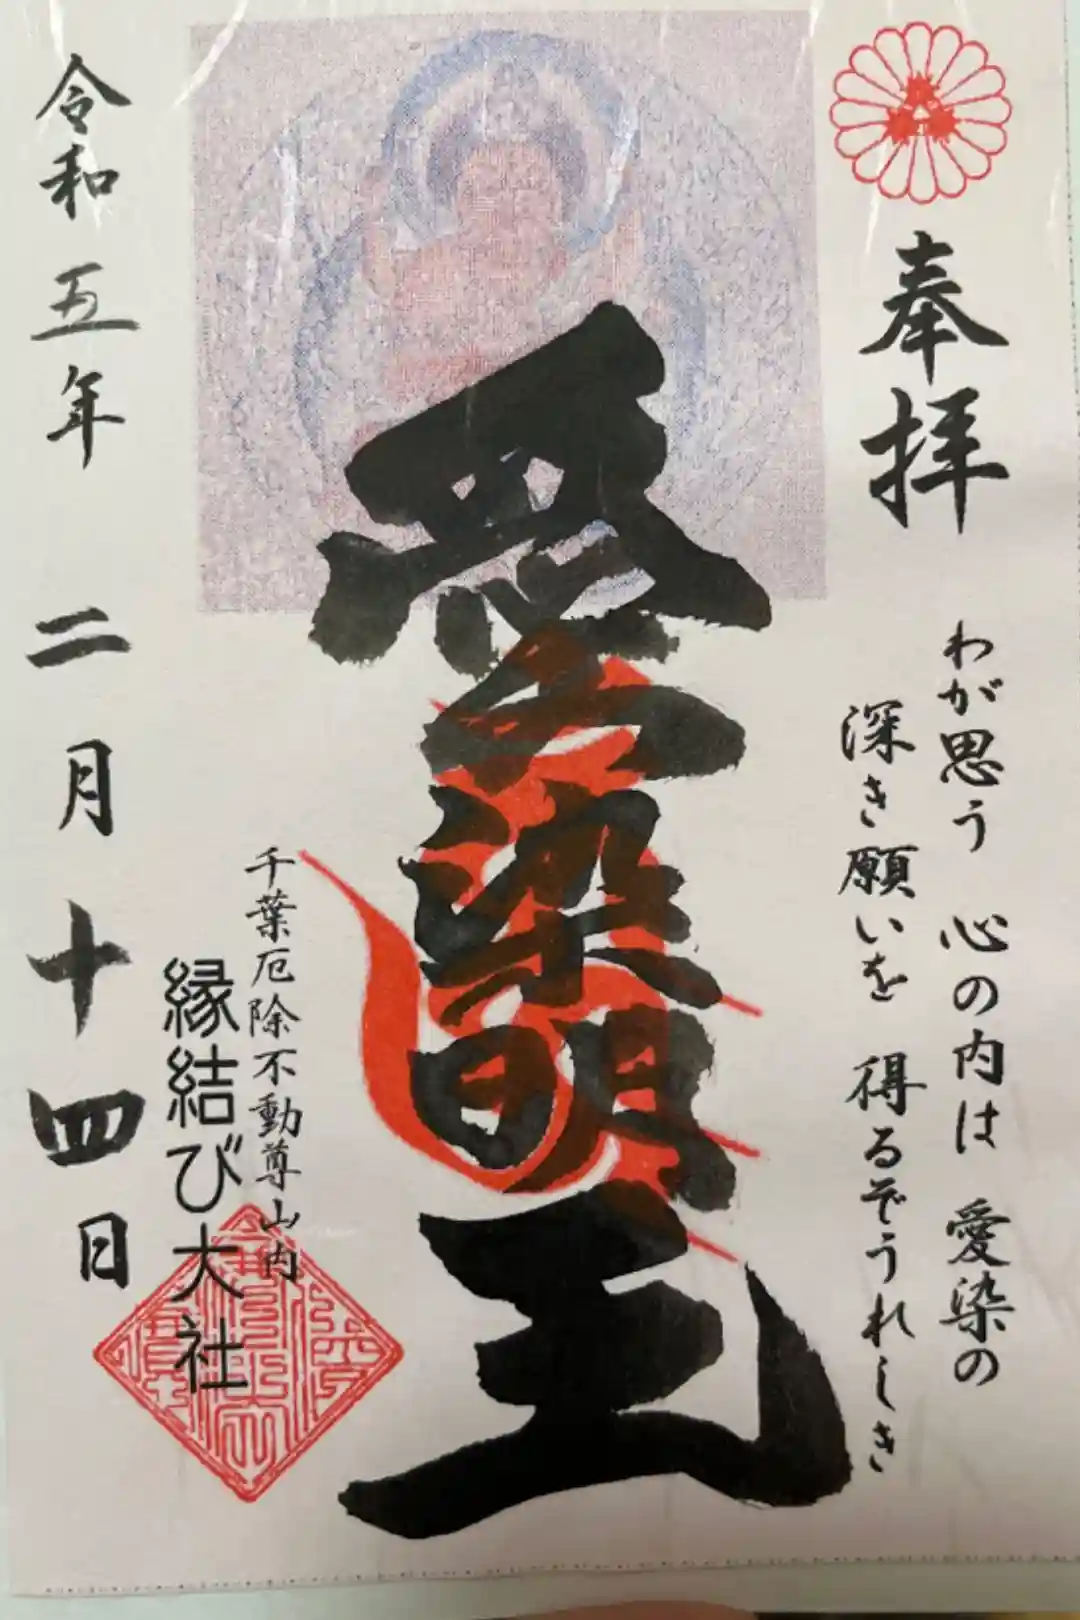 奉拝
わが思う 心の内は 愛染の
深き願いを 得るぞうれしき
愛染明王
千葉厄除不動尊山内
縁結び大社
令和五年 二月十四日